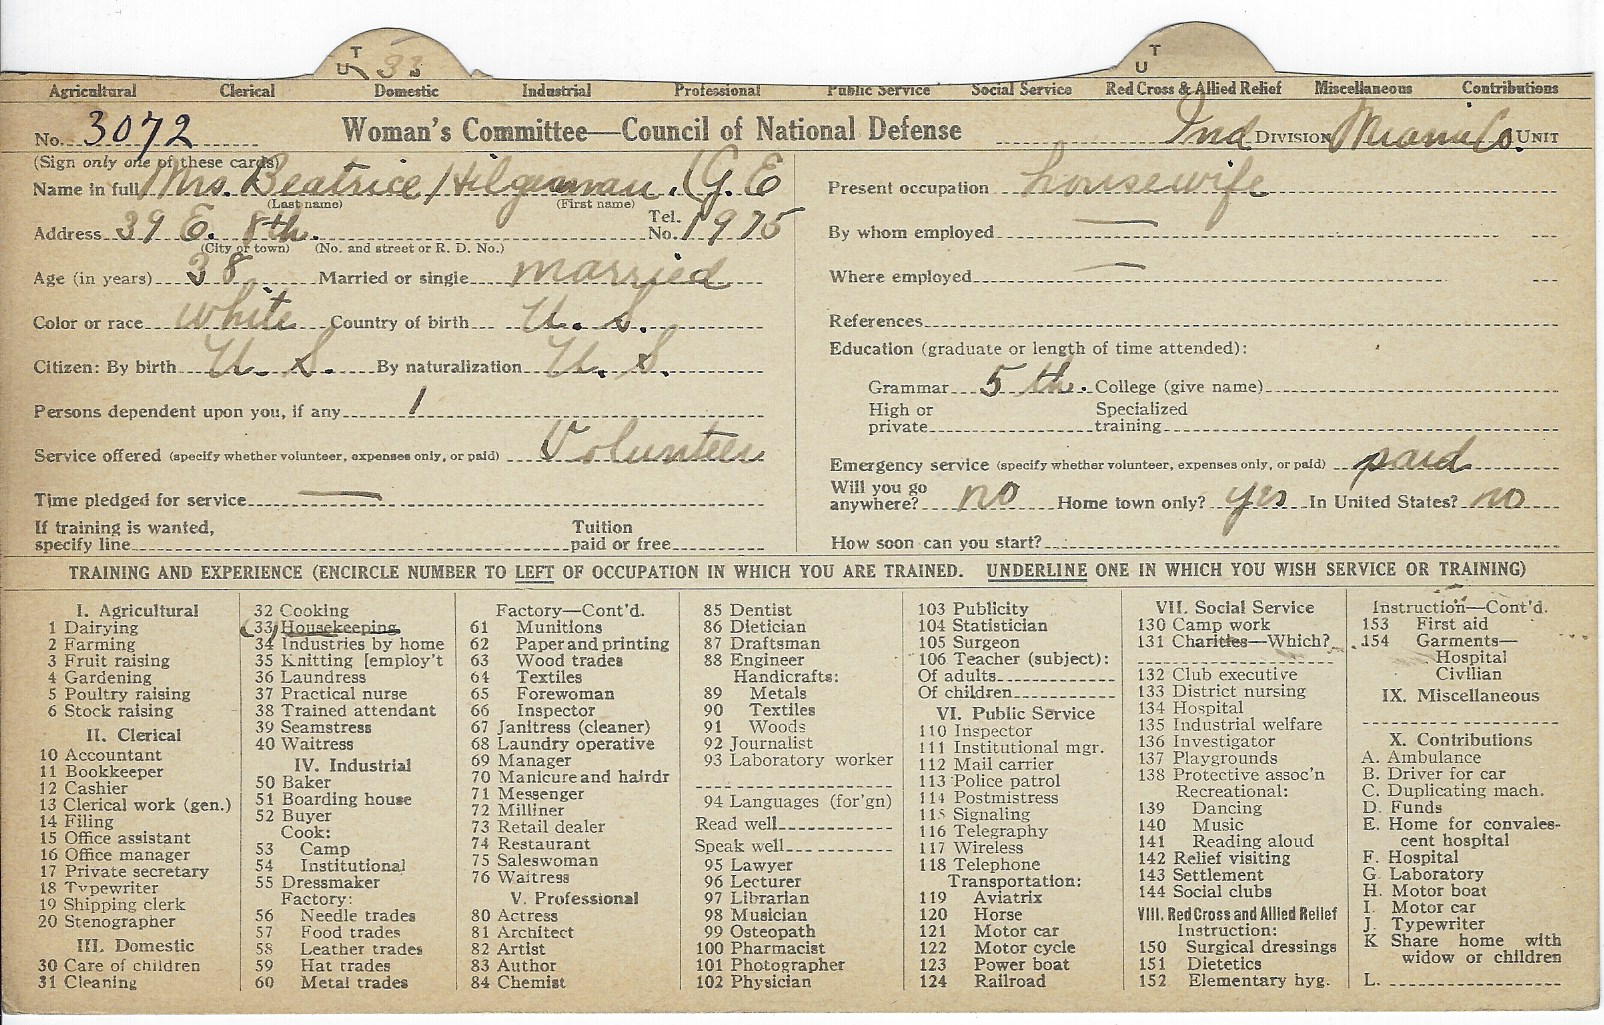 T
U 33
T
U
Agricultural Clerical Domestic Industrial Professional Public Service Social Service Red Cross & Allied Relief Miscellaneous Contributions
No. 3072 Woman's Committee—Council of National Defense Ind DIVISION Miami Co. UNIT
(Sign only one of these cards)
Name in full Mrs. Beatrice Hilgeman. (G. E
(Last name) (First name)
Address 39 E. 8th. Tel. No. 1975
(City or town) (No. and street or R. D. No.)
Age (in years) 38 Married or single married
Color or race white Country of birth U. S.
Citizen: By birth U. S. By naturalization U. S.
Persons dependent upon you, if any 1
Service offered (specify whether volunteer, expenses only, or paid) Volunteer
Time pledged for service —
If training is wanted, specify line Tuition paid or free
Present occupation housewife
By whom employed —
Where employed —
References
Education (graduate or length of time attended):
Grammar 5 th. College (give name)
High or private Specialized training
Emergency service (specify whether volunteer, expenses only, or paid) paid
Will you go anywhere? no Home town only? yes In United States? no
How soon can you start?
TRAINING AND EXPERIENCE (ENCIRCLE NUMBER TO LEFT OF OCCUPATION IN WHICH YOU ARE TRAINED. UNDERLINE ONE IN WHICH YOU WISH SERVICE OR TRAINING)
I. Agricultural
1 Dairying
2 Farming
3 Fruit raising
4 Gardening
5 Poultry raising
6 Stock raising
II. Clerical
10 Accountant
11 Bookkeeper
12 Cashier
13 Clerical work (gen.)
14 Filing
15 Office assistant
16 Office manager
17 Private secretary
18 Typewriter
19 Shipping clerk
20 Stenographer
III. Domestic
30 Care of children
31 Cleaning
32 Cooking
(33) Housekeeping
34 Industries by home
35 Knitting [employ't
36 Laundress
37 Practical nurse
38 Trained attendant
39 Seamstress
40 Waitress
IV. Industrial
50 Baker
51 Boarding house
52 Buyer
Cook:
53 Camp
54 Institutional
55 Dressmaker
Factory:
56 Needle trades
57 Food trades
58 Leather trades
59 Hat trades
60 Metal trades
Factory—Cont'd.
61 Munitions
62 Paper and printing
63 Wood trades
64 Textiles
65 Forewoman
66 Inspector
67 Janitress (cleaner)
68 Laundry operative
69 Manager
70 Manicure and hairdr
71 Messenger
72 Milliner
73 Retail dealer
74 Restaurant
75 Saleswoman
76 Waitress
V. Professional
80 Actress
81 Architect
82 Artist
83 Author
84 Chemist
85 Dentist
86 Dietician
87 Draftsman
88 Engineer
Handicrafts:
89 Metals
90 Textiles
91 Woods
92 Journalist
93 Laboratory worker
94 Languages (for'gn)
Read well
Speak well
95 Lawyer
96 Lecturer
97 Librarian
98 Musician
99 Osteopath
100 Pharmacist
101 Photographer
102 Physician
103 Publicity
104 Statistician
105 Surgeon
106 Teacher (subject):
Of adults
Of children
VI. Public Service
110 Inspector
111 Institutional mgr.
112 Mail carrier
113 Police patrol
114 Postmistress
115 Signaling
116 Telegraphy
117 Wireless
118 Telephone
Transportation:
119 Aviatrix
120 Horse
121 Motor car
122 Motor cycle
123 Power boat
124 Railroad
VII. Social Service
130 Camp work
131 Charities—Which?
132 Club executive
133 District nursing
134 Hospital
135 Industrial welfare
136 Investigator
137 Playgrounds
138 Protective assoc'n
Recreational:
139 Dancing
140 Music
141 Reading aloud
142 Relief visiting
143 Settlement
144 Social clubs
VIII. Red Cross and Allied Relief
Instruction:
150 Surgical dressings
151 Dietetics
152 Elementary hyg.
Instruction—Cont'd.
153 First aid
154 Garments—
Hospital
Civilian
IX. Miscellaneous
X. Contributions
A. Ambulance
B. Driver for car
C. Duplicating mach.
D. Funds
E. Home for convales-
cent hospital
F. Hospital
G. Laboratory
H. Motor boat
I. Motor car
J. Typewriter
K Share home with
widow or children
L.